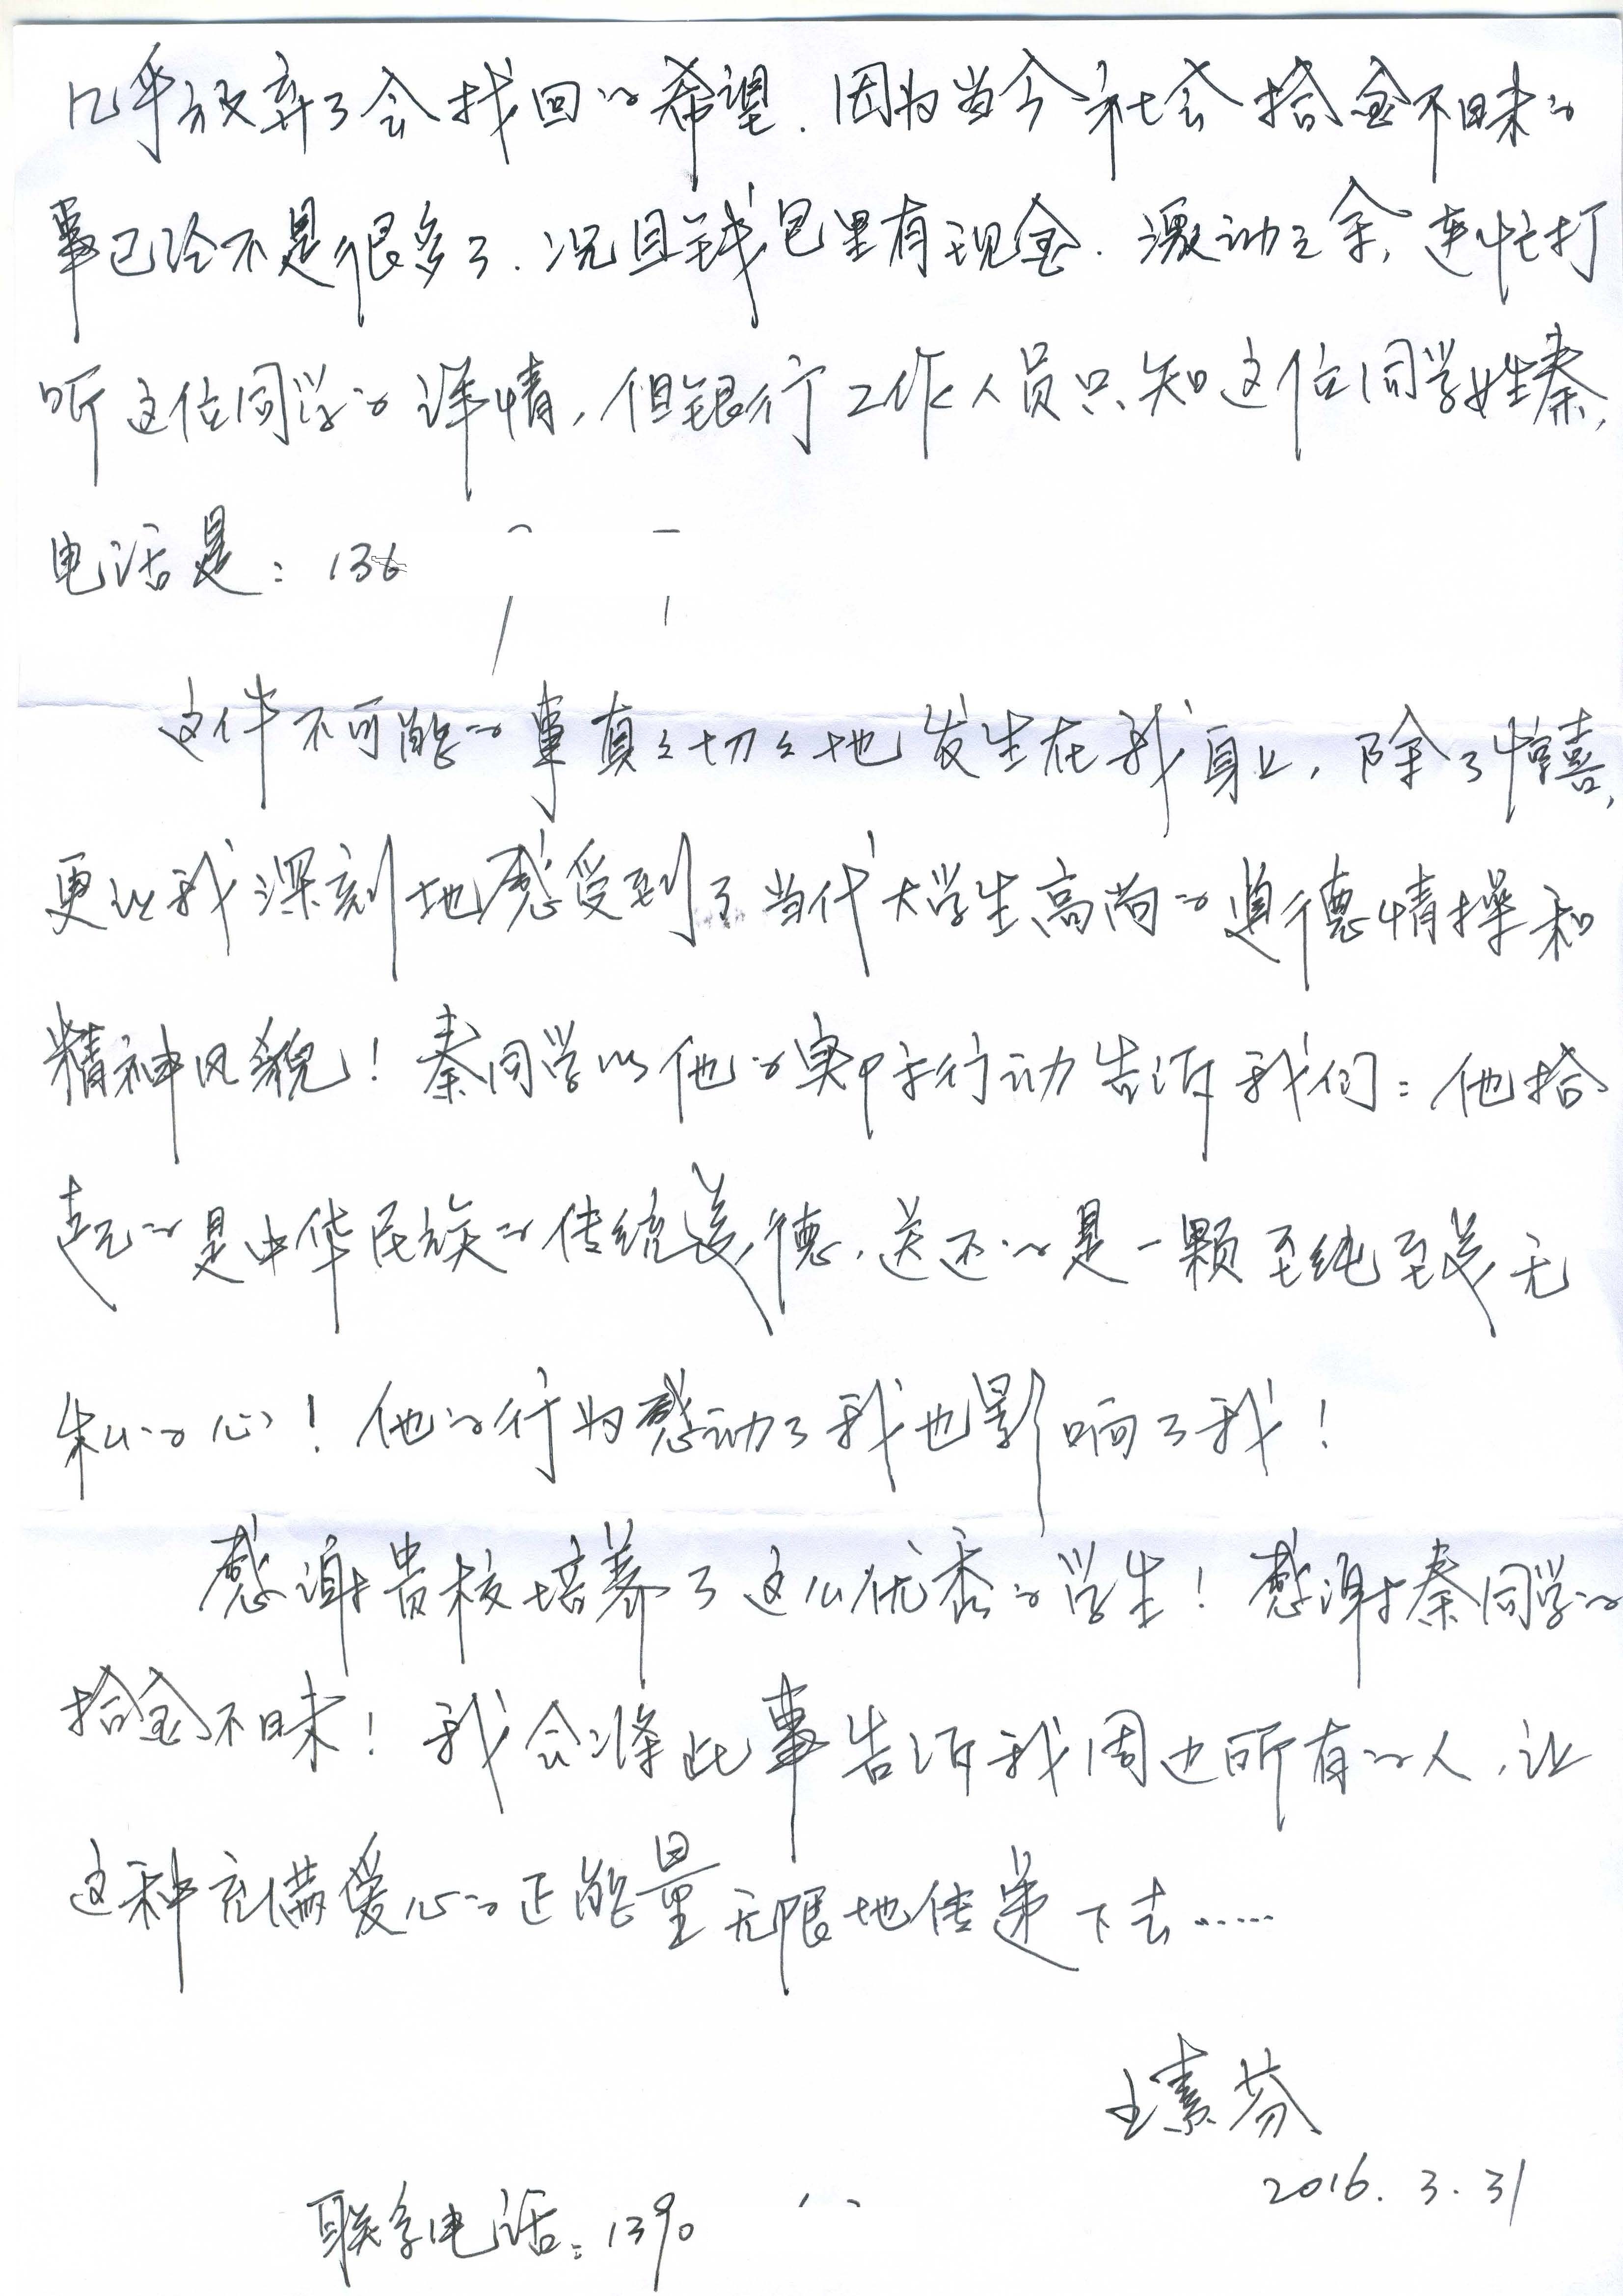 几乎放弃了会找回的希望.因为当今社会拾金不昧的
事已经不是很多了.况且钱包里有现金.激动之余,连忙打
听这位同学的详情,但银行工作人员只知这位同学姓秦,
电话是:136
这件不可能的事真真切切地发生在我身上,除了惊喜,
更让我深刻地感受到了当代大学生高尚的道德情操和
精神风貌!秦同学以他的实际行动告诉我们:他拾
起的是中华民族的传统美德,送还的是一颗至纯至美无
私的心!他的行为感动了我也影响了我!
感谢贵校培养了这么优秀的学生!感谢秦同学的
拾金不昧!我会将此事告诉我周边所有的人,让
这种充满爱心的正能量无限地传递下去……
王素芬
2016.3.31
联系电话:1390